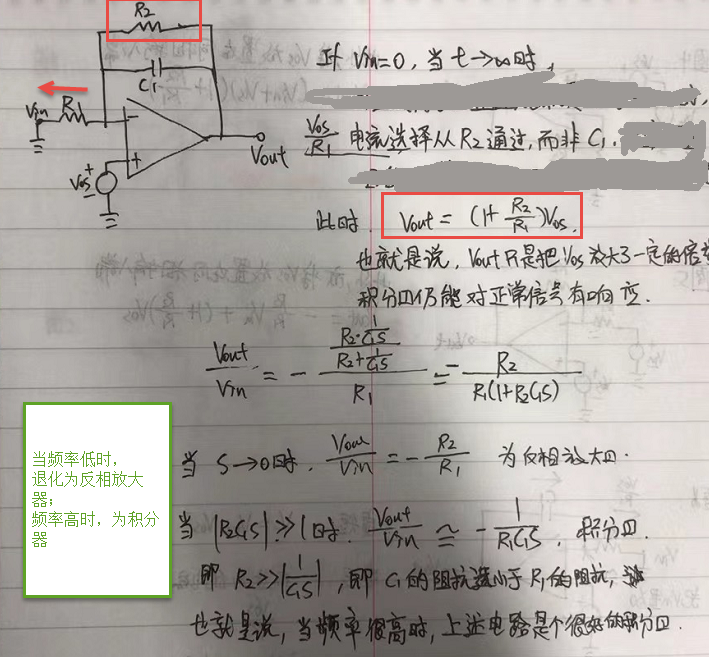 R2
C1
Vin
R1
Vos
Vout
If Vin=0, 当 t→∞时,
Vos/R1 电流选择从R2通过,而非C1.
此时. Vout = (1+R2/R1)Vos.
也就是说, Vout只是把Vos放大了一定的倍
积分四仍能对正常信号有响应.
Vout/Vin = - (R2·1/C1S)/(R2+1/C1S)/R1 = - R2/R1(1+R2C1S)
当频率低时,
退化为反相放大
器;
频率高时,为积分
器
当 S→0时. Vout/Vin = - R2/R1 为反相放大四.
当 |R2C1S|≫1时. Vout/Vin ≃ - 1/R1C1S, 积分四.
即 R2≫|1/C1S|, 即 C1的阻抗远小于R1的阻抗,
也就是说,当频率很高时,上述电路是个很好的积分四.